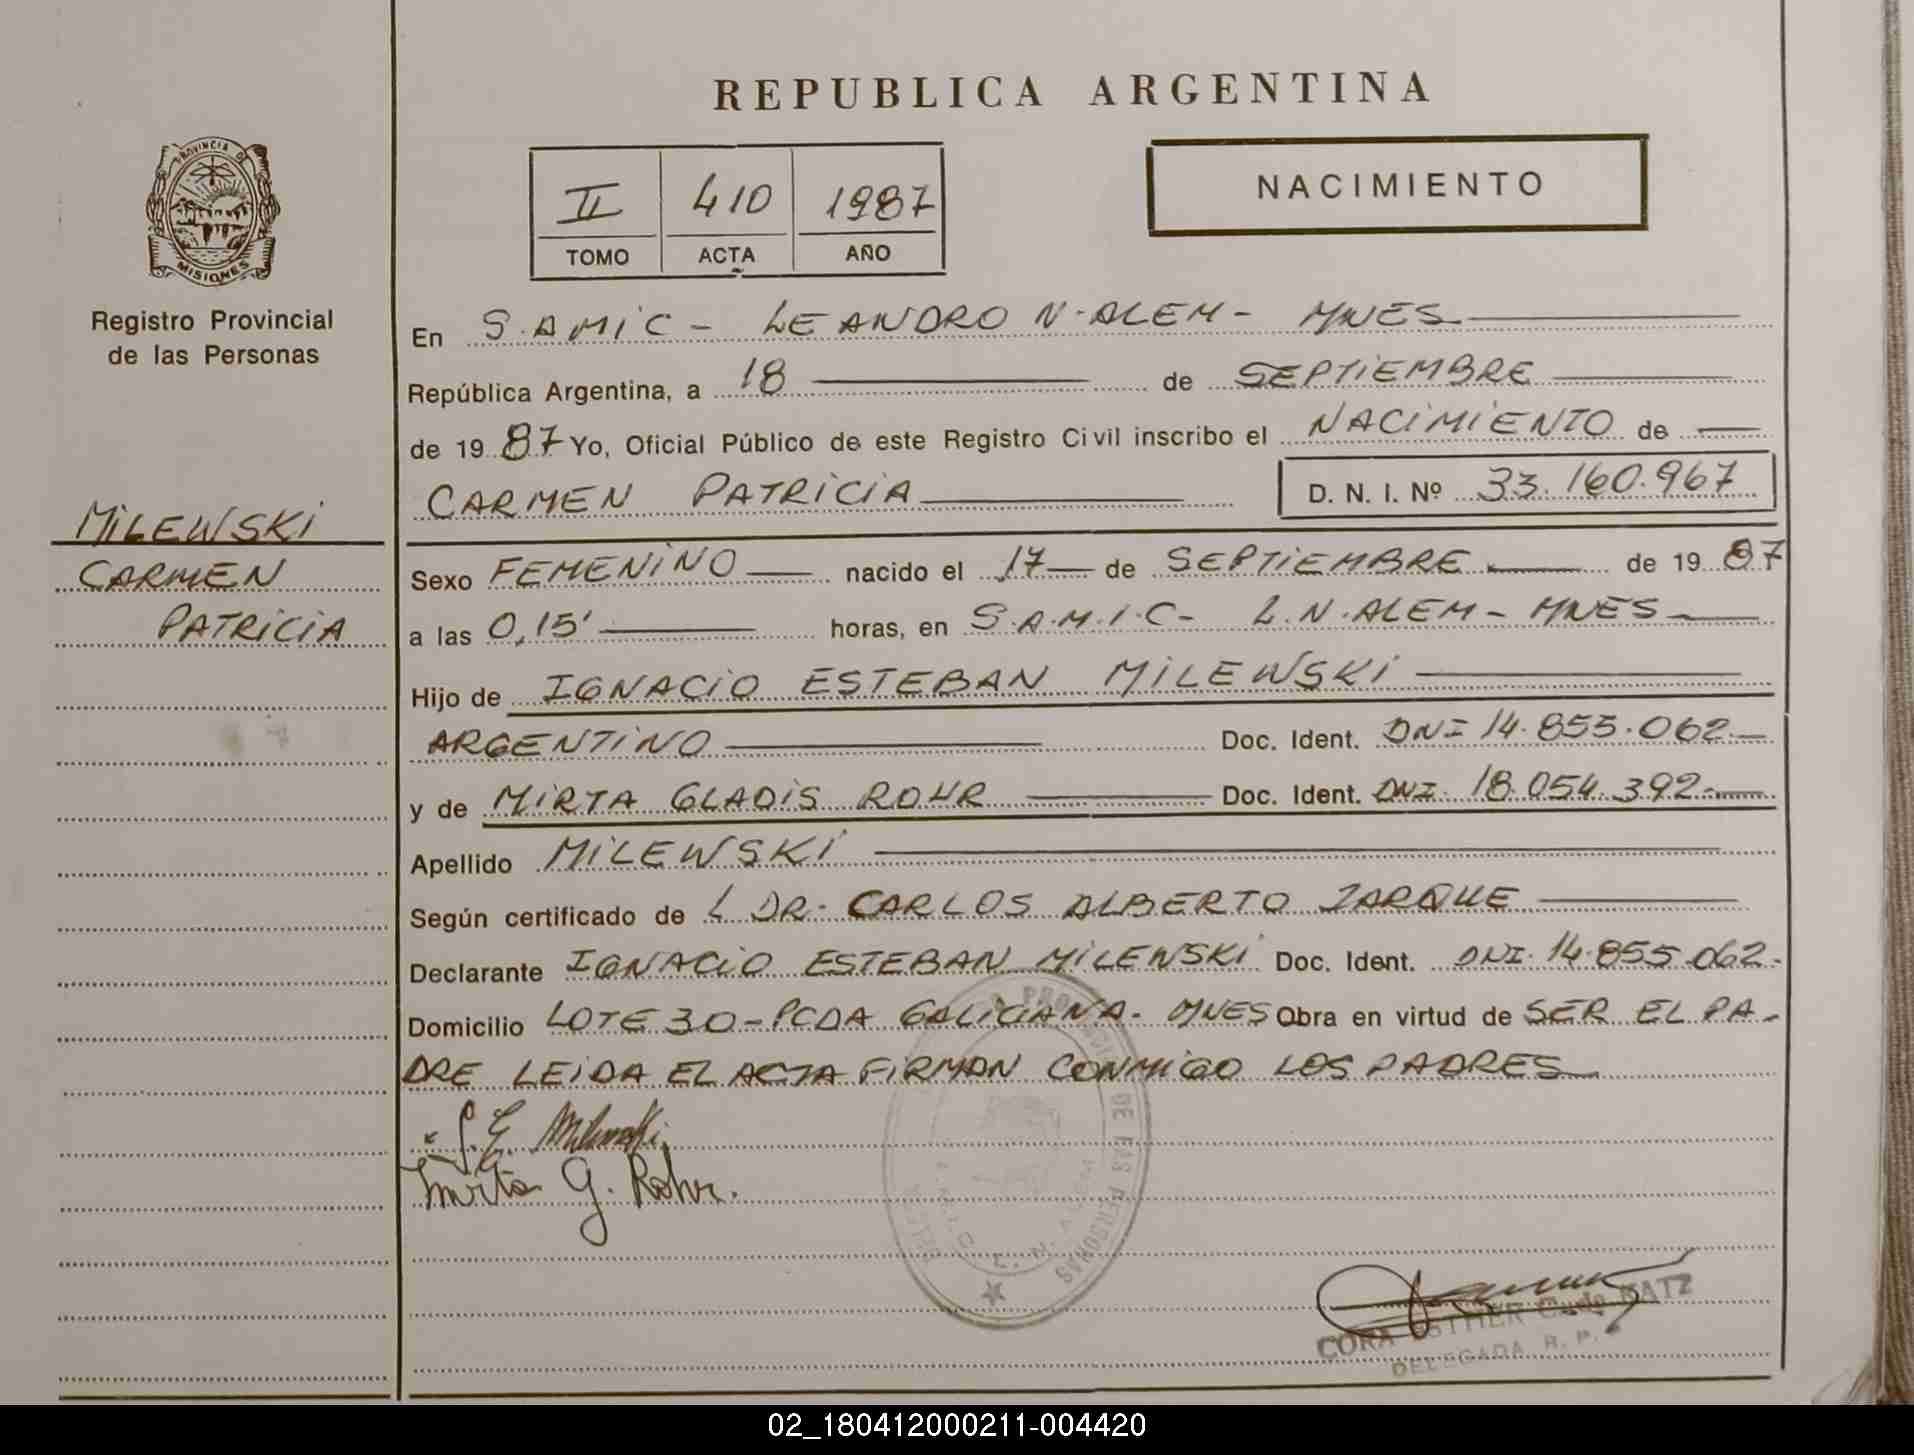 REPUBLICA ARGENTINA
PROVINCIA DE
MISIONES
Registro Provincial
de las Personas
II 410 1987
TOMO ACTA AÑO
NACIMIENTO
En S.AMIC - LEANDRO N. ALEM - MNES
República Argentina, a 18 de SEPTIEMBRE
de 1987 Yo, Oficial Público de este Registro Civil inscribo el NACIMIENTO de
CARMEN PATRICIA D. N. I. Nº 33.160.967
MILEWSKI
CARMEN
PATRICIA
Sexo FEMENINO nacido el 17 de SEPTIEMBRE de 1987
a las 0,15' horas, en S.A.M.I.C- L.N.ALEM - MNES
Hijo de IGNACIO ESTEBAN MILEWSKI
ARGENTINO Doc. Ident. DNI 14.855.062
y de MIRTA GLADIS ROHR Doc. Ident. DNI. 18.054.392
Apellido MILEWSKI
Según certificado de L DR. CARLOS ALBERTO JARQUE
Declarante IGNACIO ESTEBAN MILEWSKI Doc. Ident. DNI. 14.855.062.
Domicilio LOTE 30 - PCDA GALICIANA. MNES Obra en virtud de SER EL PA-
DRE LEIDA EL ACTA FIRMAN CONMIGO LOS PADRES
I. E. Milewski
Mirta G. Rohr.
DE LAS PERSONAS
CORA ESTHER KATZ
DELEGADA R. P.
02_180412000211-004420